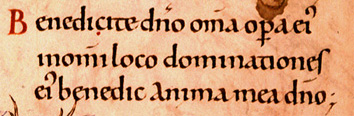 Benedicite dn̄o om̄a op̄a ei᾽
inom̄i loco dominationeſ
ei᾽ benedic anima mea dn̄o;